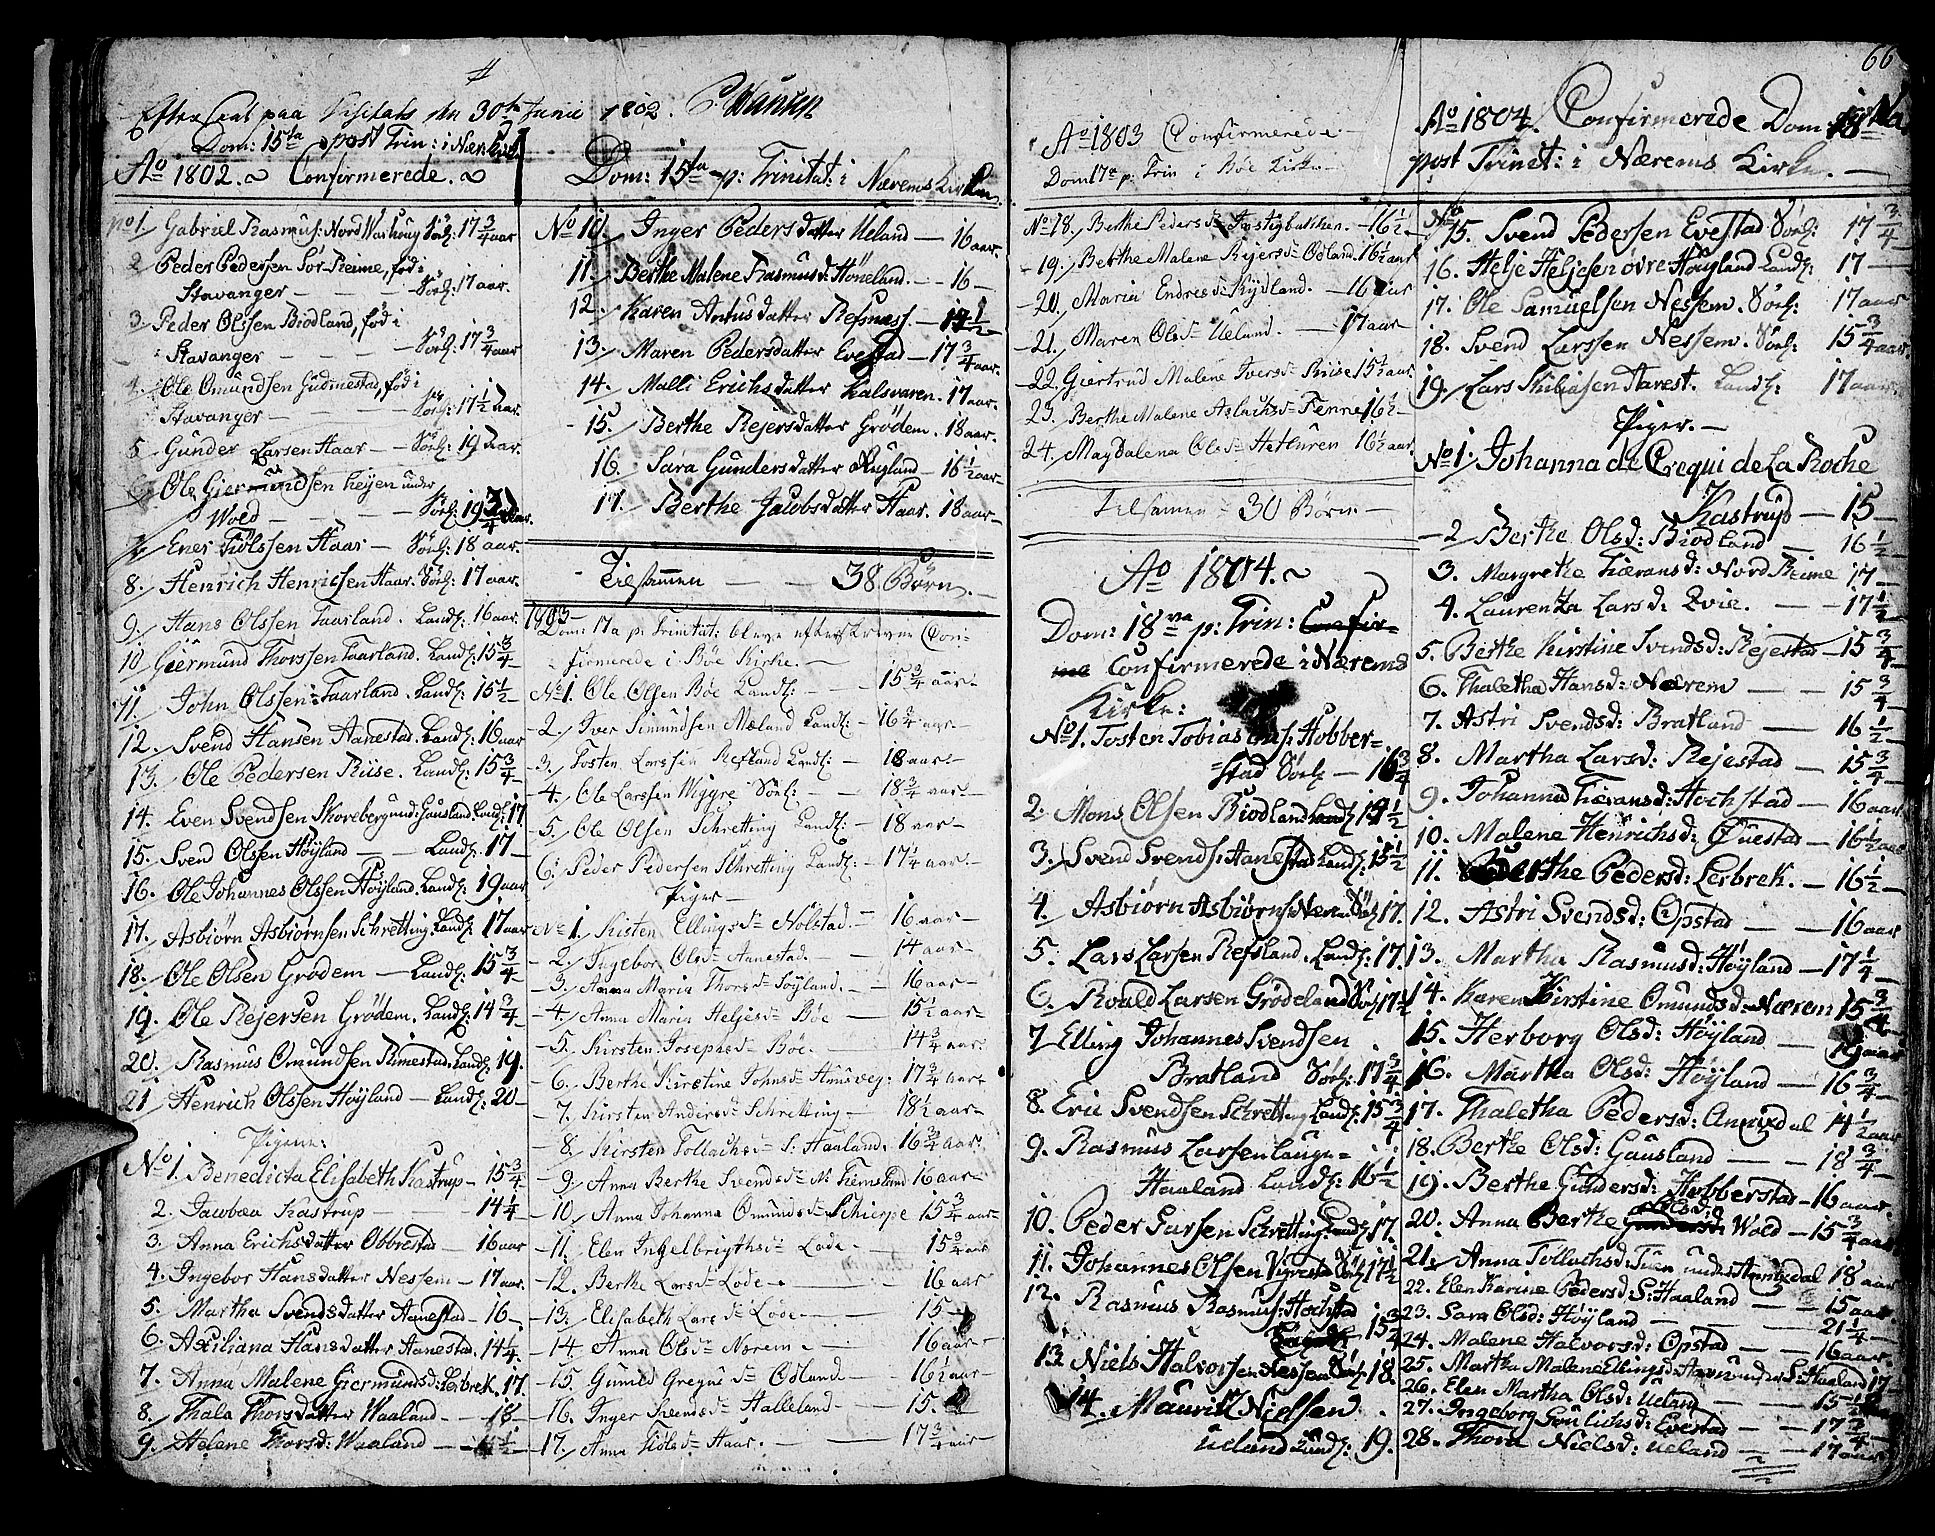 Efterseet paa Visitats den 30te Junii 1802. P. Hansen
Dom: 15ta post Trin: i Nærems
Ao 1802. ~ Confirmerede. ~
No 1 Gabriel Rasmus: Nord Warhoug Sörl: 17 3/4 aar
2 Peder Pedersen Sör-Reime, föd i
Stavanger - - - Sörl: 17 aar.
3. Peder Olssen Biodland, föd i
Stavanger - - - Sörl: 17 3/4 aar
4. Ole Omundsen Gudmestad, föd i
Stavanger - - - Sörl: 17 1/2 aar.
5 Gunder Larsen Haar - Sörl: 19 aar.
6. Ole Giermundsen heyen under
Wold - - - Sörl: 19 3/4 aar.
7. Ener Tiölssen Haar - Sörl: 18 aar.
8. Henrich Henrichsen Haar. Sörl: 17 aar.
9. Hans Olssen Taarland. Landl: 16 aar
10 Giermund Thorssen Taarland. Landl: 15 3/4
11. John Olssen Taarland. Landl: 15 1/2
12. Svend Hansen Aanestad. Landl: 16 aar
13. Ole Pedersen Riise. Landl: 15 3/4
14. Even Svendsen Skoreberg und: Gausland. Landl: 17
15. Svend Olssen Höyland - - Landl: 17
16. Ole Johannes Olssen Höyland. Landl: 19 aar
17. Asbiörn Asbiörnsen Schretting. Landl: 17 aar
18. Ole Olsen Grödem - Landl: 15 3/4
19. Ole Rejersen Grödem. Landl: 14 3/4
20. Rasmus Omundsen Rimestad. Landl: 19.
21 Henrich Olssen Höyland - Landl: 20 -
Pigene:
No 1. Benedicta Elisabeth Kastrup - 15 3/4
2. Jacobæa Kastrup - - 14 1/4
3. Anna Erichsdatter Obbrestad - 16 aar
4. Ingebor Hansdatter Nessem - 17 aar.
5. Martha Svendsdatter Aanestad - 16 -
6. Axiliana Hansdatter Aanestad. 14 1/4
7. Anna Malene Giermundsd: Lerbrek. 17.
8. Thala Thorsdatter Waaland - 18 -
9. Helene Thorsd: Waaland
Dom: 15ta p: Trinitat: i Nærems Kirken.
No 10. Inger Pedersdatter Ueland - 16 aar.
11. Berthe Malene Rasmusd: Höneland. - 16 -
12. Karen Antusdatter Refsnæss - 17 1/2
13. Maren Pedersdatter Evestad - 17 3/4 aar.
14. Malli Erichsdatter Kalsvaren. 17 aar.
15. Berthe Rejersdatter Grödem. 18 aar.
16. Sara Gundersdatter Auglund - 16 1/2 aar
17. Berthe Jacobsdatter Haar. 18 aar
Tilsammen - - 38 Börn.
1803
Dom: 17a p: Trinitat: bleve efterskrevne Con-
firmerede i Böe Kirke. -
No 1. Ole Olsen Böe Landl: - - 15 3/4 aar -
2. Iver Simundsen Mæland Landl: - 16 3/4 aar -
3. Tosten Larssen Refsland Landl: - 18 aar -
4. Ole Larssen Wigre Sörl: - - 18 3/4 aar -
5. Ole Olsen Schretting Landl: - 18 aar -
6. Peder Pedersen Schretting Landl: - 17 1/4 aar -
Piger -
No 1. Kisten Ellingsdr Nölstad. - 16 aar -
2. Ingebor Olsdr Aanestad. - 14 aar -
3. Anna Maria Thorsdr Höyland. - 16 aar -
4. Anna Maria Heljesdr Böe - 15 1/2 aar -
5. Kirsten Josephsdr Böe. - 14 3/4 aar -
6. Berthe Kirstine Johnsdr Hansveg: 17 3/4 aar -
7. Kirsten Andersdr Schretting - 18 1/2 aar -
8. Kirsten Tollachsdr S: Haaland. 16 3/4 aar -
9. Anna Berthe Svendsdr N: Tiemsland 16 aar -
10. Anna Johanna Omundsdr Schierpe 15 3/4 aar -
11. Elen Ingelbrigthsdr Lode - - 15 3/4 aar
12. Berthe Larsdr Lode - - 16 aar
13. Elisabeth Larsdr Lode - 15 -
14. Anna Olsdr Norem - - 16 aar
15. Gunild Gregusdr Ödland - 16 1/2 aar
16. Inger Svendsdr Halleland - 15.
17. Anna Tiölsdr Haar. - - 17 3/4 aar
Ao 1803 Confirmerede -
Dom 17a p: Trin i Böe Kirke -
No 18. Berthe Pedersdr Tostigbakken. - 16 1/2 -
19. Berthe Malene Rejersdr Ödland. 16 1/2 aar
20. Maria Endresdr Kydland. - 16 aar
21. Maren Olsdr Ueland. - 17 aar
22. Giertrud Malene Iversdr Riise 15 1/2 aar.
23. Berthe Malene Aslachsdr Fenne 16 1/2 -
24. Magdalena Olsdr Hetluren 16 1/2 aar.
Tilsamen - 30 Börn. -
Ao 1804. ~
Dom: 18va p: Trin: Confir-
me Confirmerede i Nærems
Kirke:
No 1. Tosten Tobias: Hobber=
=stad Sörl - 16 3/4
2. Mons Olsen Biodland Landl 19 1/2
3. Svend Svends: Hanestad Landl: 15 1/2
4. Asbiörn Asbiörns: Sörl 17.
5. Lars Larsen Refsland. Landl: 17.
6. Roald Larsen Grödeland Sörl 17 1/2
7 Elling Johannes Svendsen
Bratland Sörl: 17 3/4
8. Eric Svendsen Schretting Landl: 15 3/4
9. Rasmus Larsen Laugn=
Haaland Landl: 16 1/2
10. Peder Larsen Schretting Landl 17.
11. Johannes Olsen Vigrestad Sörl 17 1/2
12. Rasmus Rasmus: Hochstad
15 3/4
13 Niels Halvorsen Nessem Sörl 18.
14. Mauritz Nielsen.
Ueland Landl: 19.
66
Ao 1804. Confirmerede Dom: 18va
post Trinit: i Nærems Kirke. -
No 15. Svend Pedersen Evestad Sörl: 17 3/4 -
16. Helje Heljesen övre Höyland Landl: 17 -
17. Ole Samuelsen Nessem. Sörl: 17 aar
18. Svend Larssen Nessem. Sörl: 15 3/4 aar.
19. Lars Tobiasen Aarest. Landl: 17 aar.
Piger. -
No 1. Johanna de Crequi de La Roche
Kastrup - 15 -
2 Berthe Olsd: Biodland - 16 1/2
3. Margrethe Tiæransd: Nord Reime 17 -
4. Laurentza Larsd: Qvie. - - 17 1/2
5. Berthe Kirstine Svendsd: Rejestad - 15 3/4
6. Thaletha Hansd: Nærem - - 15 3/4
7. Astri Svendsd: Bratland - 16 1/2
8. Martha Larsd: Rejestad - 15 3/4
9. Johanna Tiæransd: Hochstad - 16 aar
10. Malene Henrichsd: Qüestad - 16 1/2 aar
11. Berthe Pedersd: Lerbrek. - 16 1/2
12. Astri Svendsd: Opstad - 16 aar
13. Martha Rasmusd: Höyland - 17 1/4
14. Karen Kirstine Omundsd: Nærem 15 3/4
15. Herborg Olsd: Höyland - 19 aar
16. Martha Olsd: Höyland - 16 3/4
17. Thaletha Pedersd: Aniqdal 14 1/2 aar
18. Berthe Olsd: Gausland - - 18 3/4
19. Berthe Gundersd: Hobberstad - 16 aar.
20. Anna Berthe Olsd: Wold - 15 3/4 aar
21. Anna Tollachsd: Tuen under Aniqdal 18 aar
22. Elen Karine Pedersd: S: Haaland - 15 aar.
23. Sara Olsd: Höyland - - 21 1/4 -
24. Malene Halvorsd: Opstad - - 16 aar.
25. Martha Malene Ellingsd: under S: Haaland 17 -
26. Elen Martha Olsd: Ueland - 15 1/2
27. Ingeborg Evestad - - 17 3/4
28. Thora Nielsd: Ueland - - 17 aar